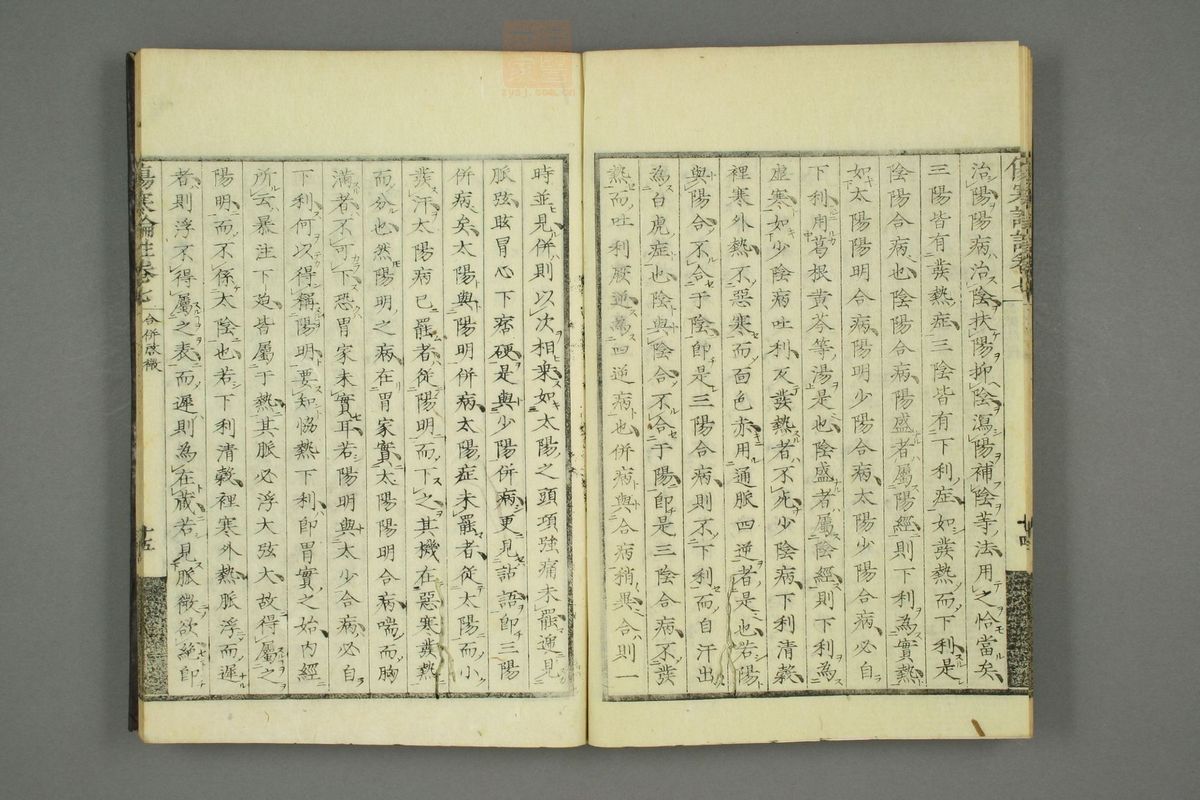 治陽陽病治陰扶陽抑陰瀉陽補陰等法用之恰當矣
三陽皆有發熱症三陰皆有下利症如發熱而下利是
陰陽合病也陰陽合病陽盛者屬陽經則下利為實熱
如太陽陽明合病陽明少陽合病太陽少陽合病必自
下利用葛根黃芩等湯是也陰盛者屬陰經則下利為
虛寒如少陰病吐利反發熱者不死少陰病下利清穀
裡寒外熱不惡寒而面色赤用通脈四逆者是也若陽
與陽合不合于陰卽是三陽合病則不下利而自汗出
為白虎症也陰與陰合不合于陽卽是三陰合病不發
熱而吐利厥逆為四逆病也併病與合病稍異合則一
時並見併則以次相乘如太陽之頭項強痛未罷遞見
脈弦眩冒心下痞硬是與少陽併病更見譫語卽三陽
併病矣太陽與陽明併病太陽症未罷者從太陽而小
發汗太陽病已罷者從陽明而下之其機在惡寒發熱
而分也然陽明之病在胃家實太陽陽明合病喘而胸
滿者不可下恐胃家未實耳若陽明與太少合病必自
下利何以得稱陽明要知協熱下利卽胃實之始內經
所云暴注下迫皆屬于熱其脈必浮大弦大故得屬之
陽明而不係太陰也若下利清穀裡寒外熱脈浮而遲
者則浮不得屬之表而遲則為在藏若見脈微欲絕卽
傷寒論註卷七
合併啟微
十五
十四
zysj.com.cn